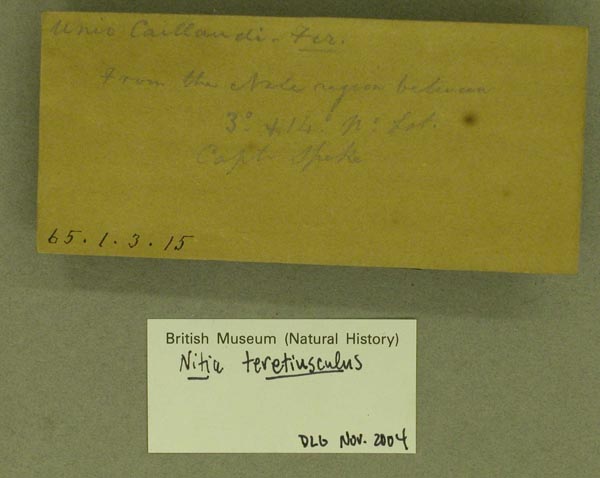 Unio Caillaudi. Fer.
From the Nile region between
3° & 14° N° Lat.
Capt Speke
65.1.3.15
British Museum (Natural History)
Nitia teretiusculus
DLG Nov. 2004